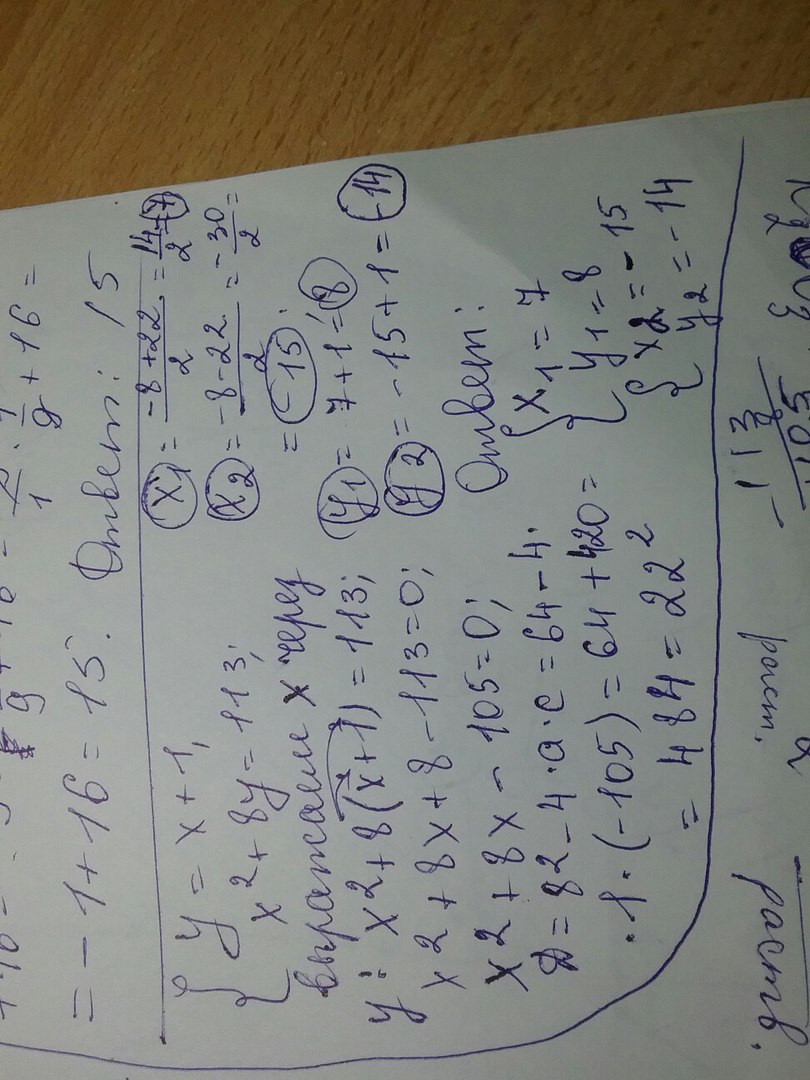 = -1 + 16 = 15. Ответ: 15
{ y = x + 1,
x2 + 8y = 113;
выражаем x через
y: x2 + 8(x+1) = 113;
x2 + 8x + 8 - 113 = 0;
x2 + 8x - 105 = 0;
D = 82 - 4·a·c = 64 - 4·
·1·(-105) = 64 + 420 =
= 484 = 22²
x1 = -8+22/2 = 14/2 = 7
x2 = -8-22/2 = -30/2 =
= -15.
y1 = 7+1 = 8
y2 = -15+1 = -14
Ответ:
{ x1 = 7
y1 = 8
{ x2 = -15
y2 = -14
раст.
раств.